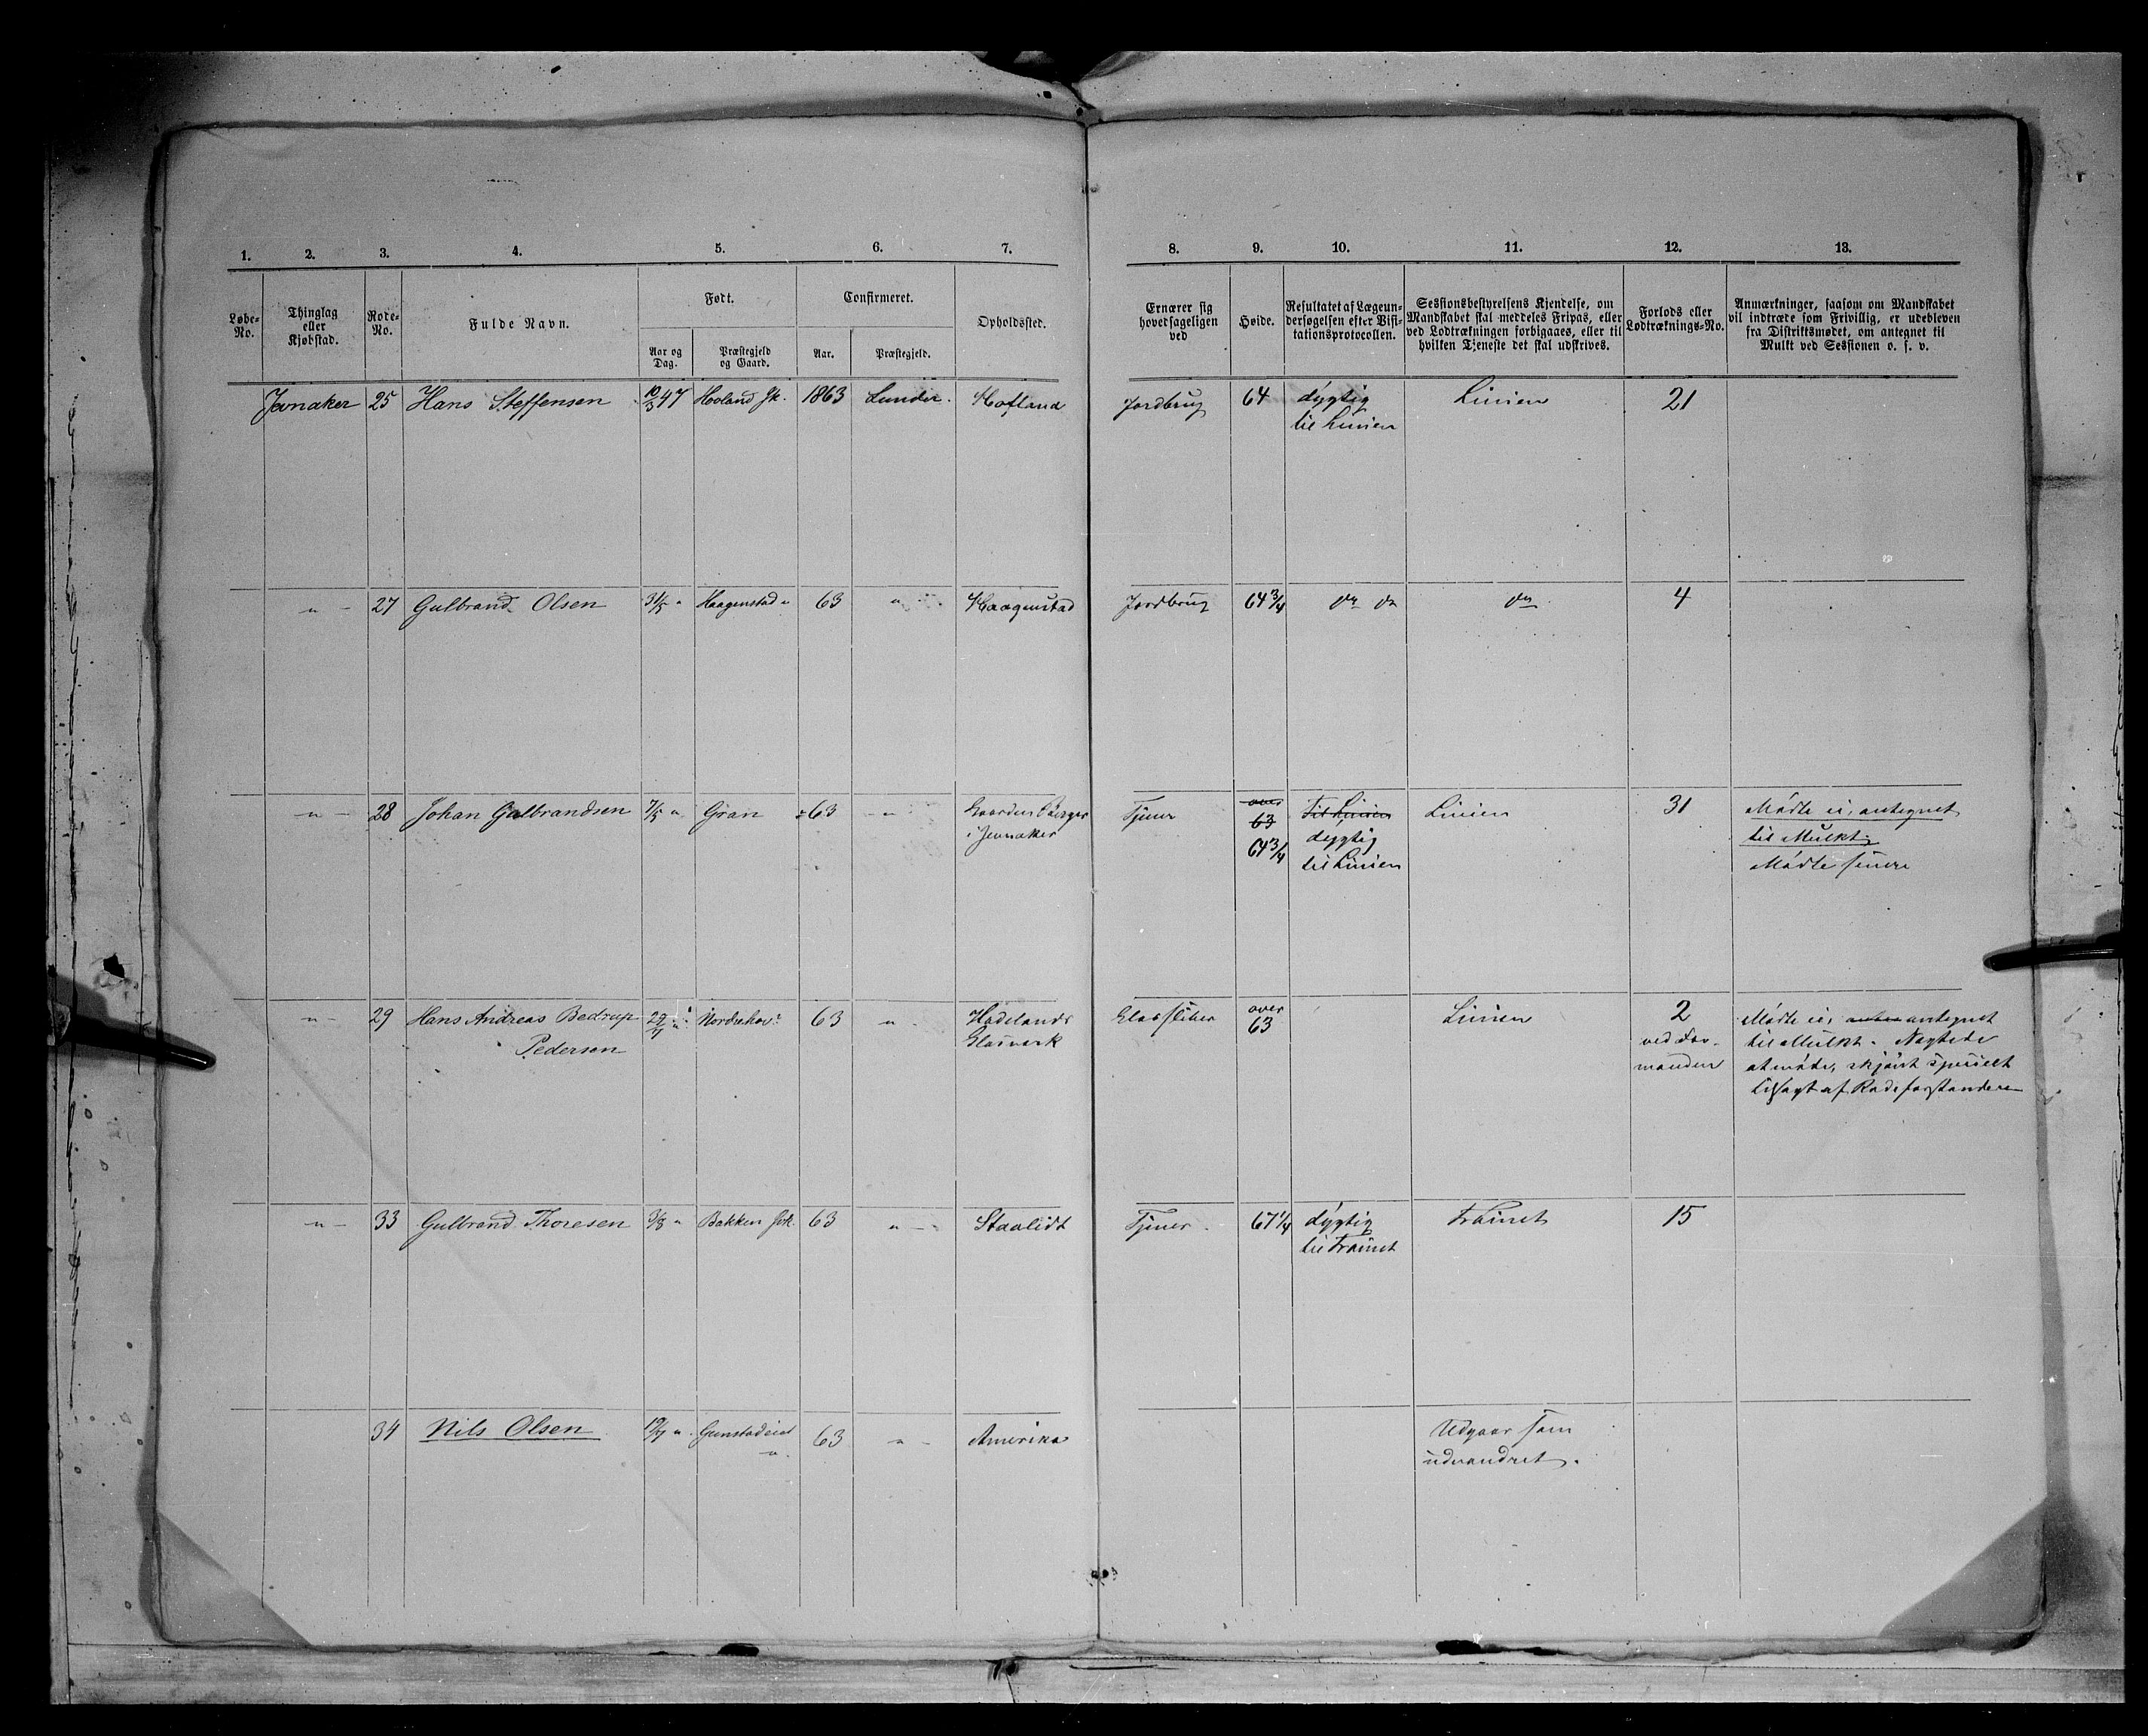 1. 2. 3. 4. 5. 6. 7. 8. 9. 10. 11. 12. 13.
Løbe-No.
Thinglag eller Kjøbstad.
Rode-No.
Fulde Navn.
Født.
Aar og Dag.
Præstegjeld og Gaard.
Confirmeret.
Aar.
Præstegjeld.
Opholdssted.
Ernærer sig hovedsageligen ved
Høide.
Resultatet af Lægeundersøgelsen efter Visitationsprotocollen.
Sessionsbestyrelsens Kjendelse, om Mandskabet skal meddeles Fripas, eller ved Lodtrækningen forbigaaes, eller til hvilken Tjeneste det skal udskrives.
Forlods eller Lodtræknings-No.
Anmærkninger, saasom om Mandskabet vil indtræde som Frivillig, er udebleven fra Distriktsmødet, om antegnet til Mulkt ved Sessionen o. s. v.
Jevnaker 25 Hans Steffensen 10/3 47 Hovland Jk. 1863 Lunder. Hofland Jordbrug 64 dygtig Linien 21
til Linien
-"- 27 Gulbrand Olsen 31/5 " Haagenstad " 63 " Haagenstad Jordbrug 64 3/4 do do do 4
-"- 28 Johan Gulbrandsen 7/5 " Gran 63 -"- i Jevnaker Tjener over 63 64 3/4 Til Linien Linien 31 Mødte ei, antegnet
dygtig til Mulkt.
til Linien Mødte senere
-"- 29 Hans Andreas Bedrup 29/7 " Nordrehov 63 " Hadelands Glassliber over Linien 2 Mødte ei, antegnet
Pedersen Glasværk 63 ved For- til Mulkt. Nægtede
manden at møde, skjønt specielt
tilsagt af Rodeforstanderen
-"- 33 Gulbrand Thoresen 3/8 " Bakken Jvk. 63 " Staalidt Tjener. 67 1/4 dygtig Trainet 15
til Trainet
34 Nils Olsen 19/7 " Gunstadeiet 63 " Amerika Udgaar som
" udvandret.